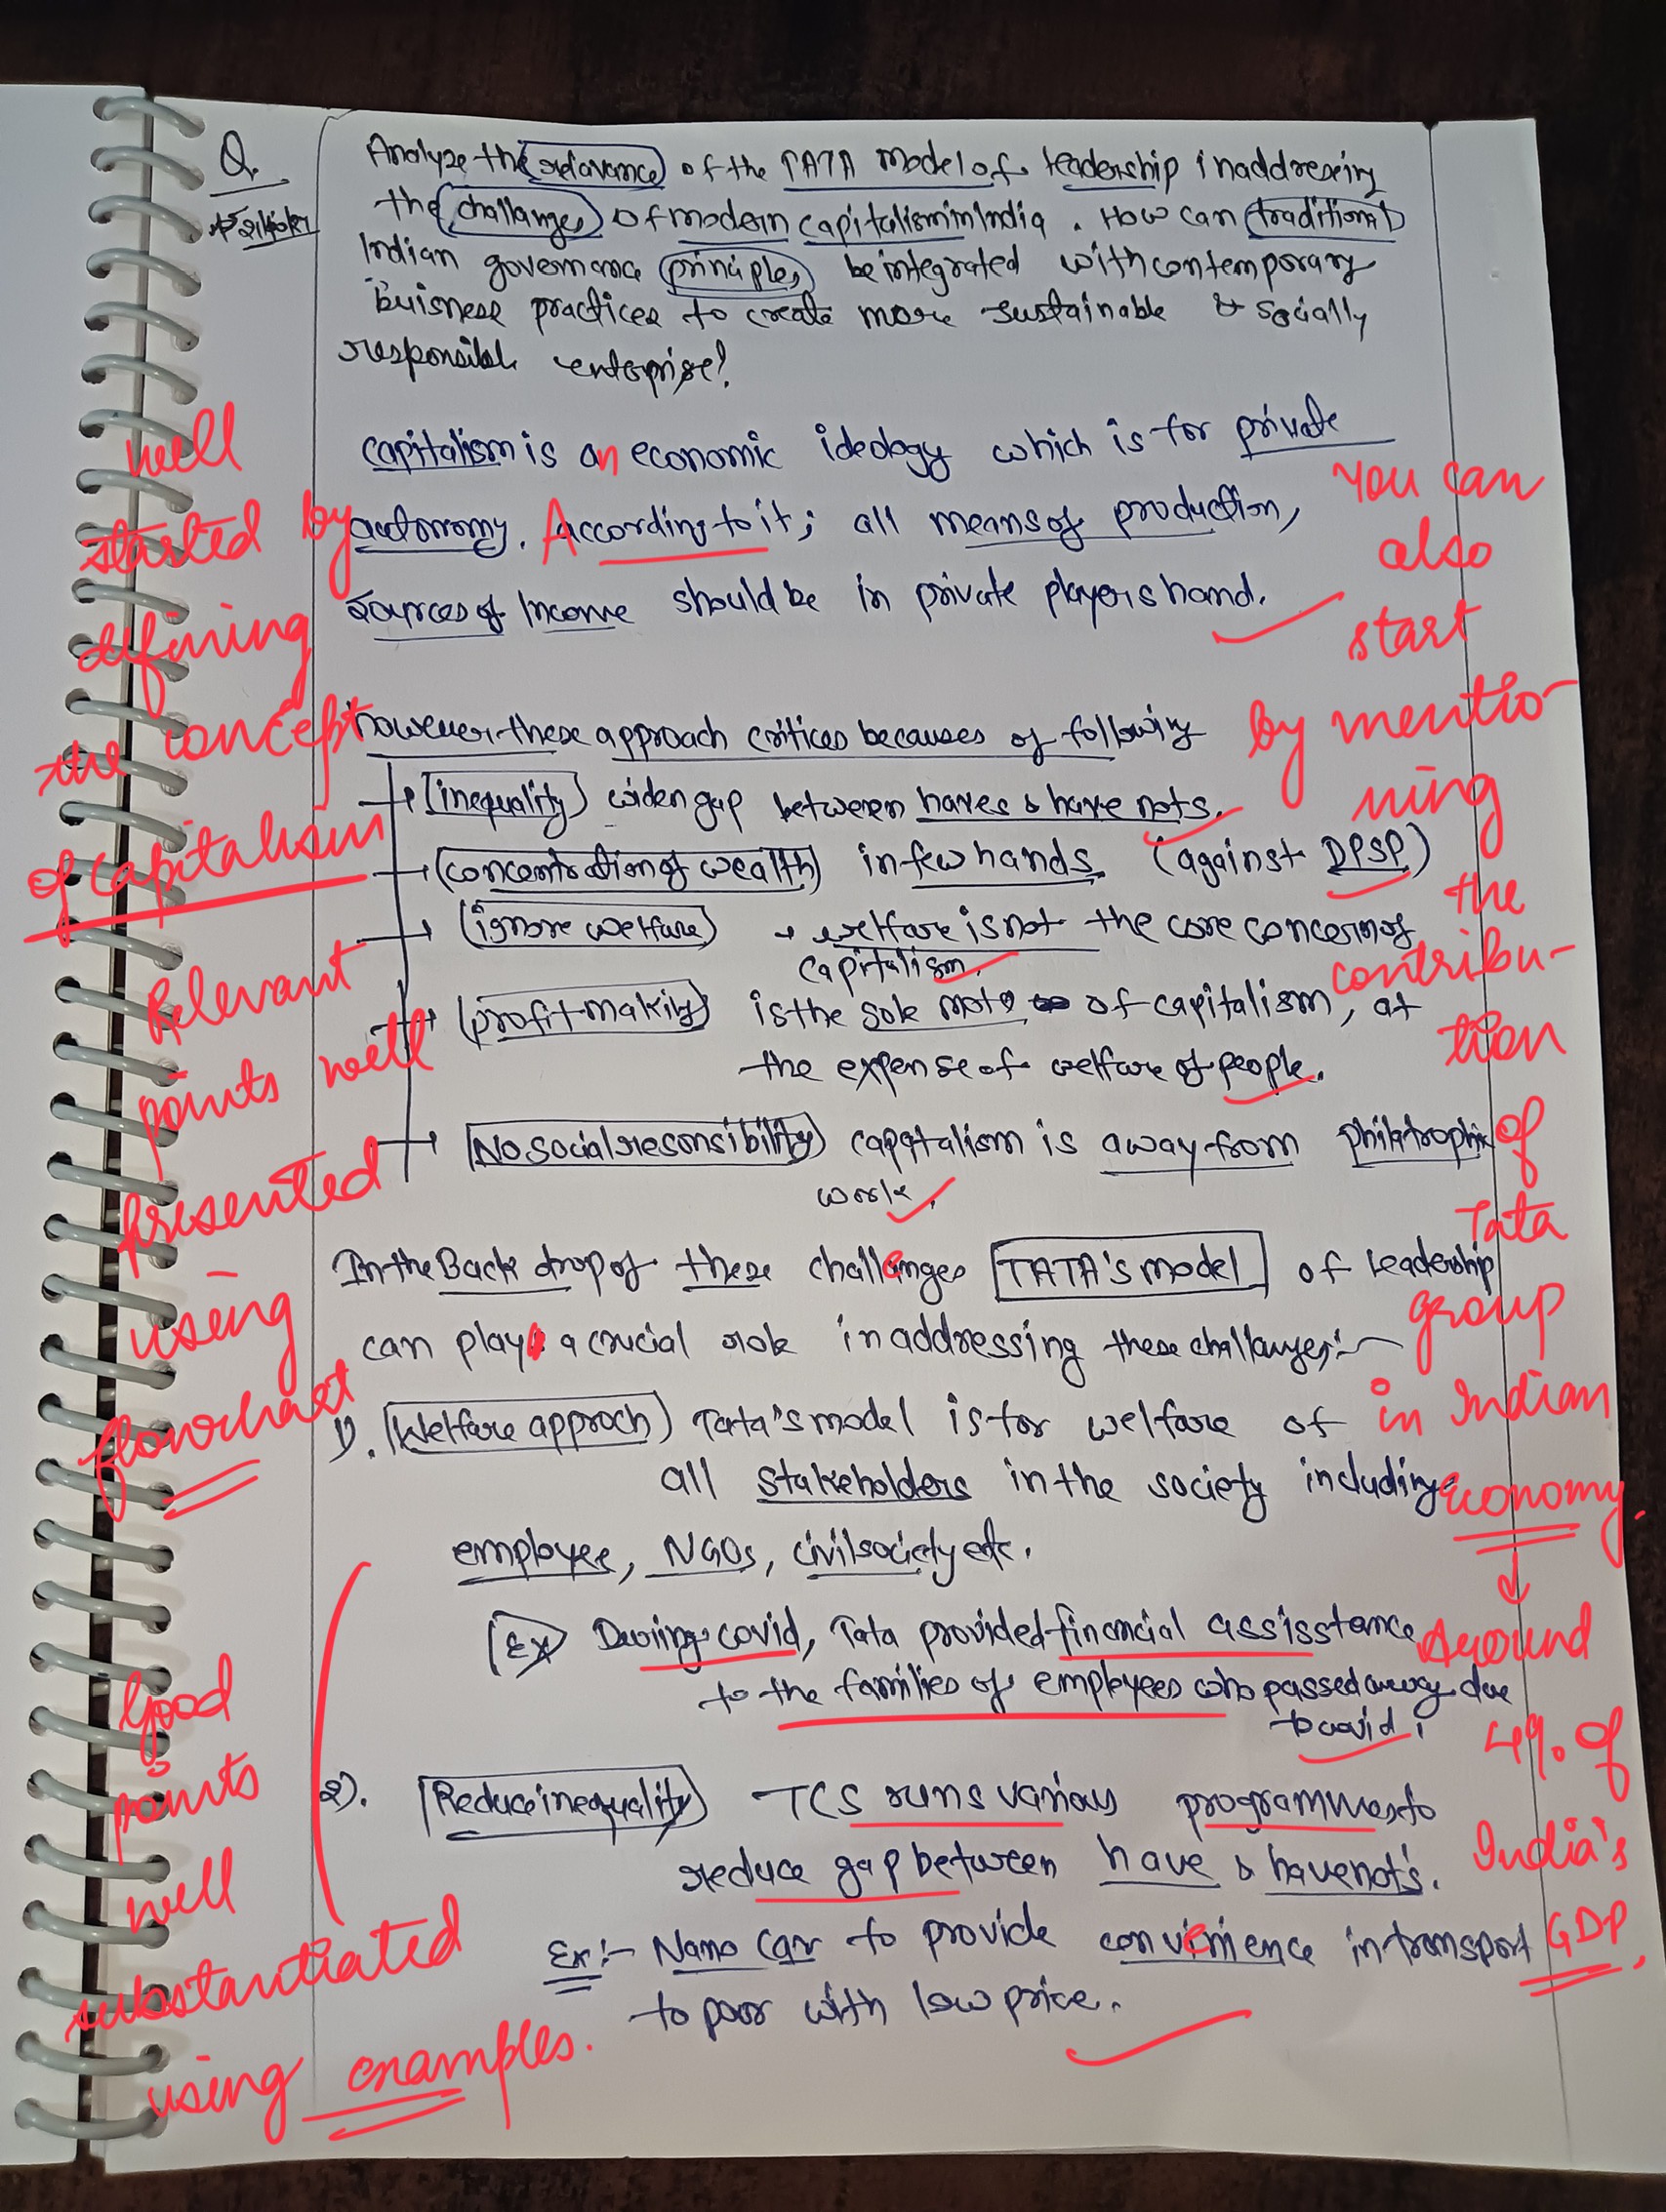 Q.
Analyze the relavance of the TATA model of leadership in addressing
the challanges of modern capitalism in India. How can traditional
Indian governance principles be integrated with contemporary
buisness practices to create more sustainable & socially
responsible enterprise?
capitalism is an economic ideology which is for private
autonomy. According to it; all means of production,
sources of Income should be in private players hand.
However these approach critices becauses of following
inequality widen gap between haves & have nots.
concentration of wealth in few hands (against DPSP)
ignore welfare → welfare is not the core concern of
capitalism.
profit making is the sole moto of capitalism, at
the expense of welfare of people.
No social resonsibility capatalism is away from philatrophic
work.
In the Back drop of these challenges TATA's model of leadership
can play a crucial role in addressing these challanges:-
1). Welfare approch Tata's model is for welfare of
all stakeholders in the society including
employee, NGOs, civil society etc.
Ex During covid, Tata provided financial assisstance
to the families of employees who passed away due
to covid.
2). Reduce inequality TCS runs various programmes to
reduce gap between have & havenot's.
Ex:- Nano Car to provide convenience in transport
to poor with low price.
well
started by
defining
the concept
of capitalism
Relevant
points well
presented
using
flowchart
Good
points
well
substantiated
using examples.
You can
also
start
by mentio-
ning
the
contribu-
tion
of
Tata
group
in Indian
economy.
↓
Around
4% of
India's
GDP.